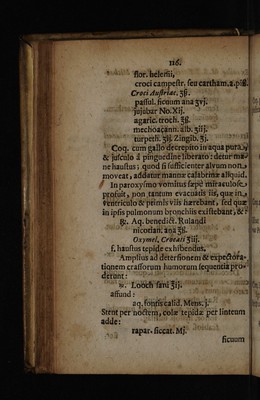 116.
flor. helenii,
croci campestr. seu cartham. a. piß.
Croci Austriac. ʒß.
passul. ficuum ana ʒvj.
jujubar No. Xij.
agaric. troch. ʒß.
mechoacann. alb. ʒiij.
turpeth. ʒij. Zingib. ʒj.
Coq. cum gallo decrepito in aqua pura,
& jusculo à pinguedine liberato: detur ma-
ne haustus; quod si sufficienter alvum non
moveat, addatur mannæ calabrinæ aliquid.
In paroxysmo vomitus sæpè miraculose
profuit, non tantum evacuatis iis, quæ in
ventriculo & primis viis hærebant, sed quæ
in ipsis pulmonum bronchiis existebant, &c.
℞. Aq. benedict. Rulandi
nicotian. ana ℥ß.
Oxymel. Crocati ʒiij.
f. haustus tepide exhibendus.
Amplius ad detersionem & expectora-
tionem crassorum humorum sequentia pro-
derunt:
℞. Looch sani ℥ij.
affund:
aq. fontis calid. Mens. j.
Stent per noctem, colæ tepidæ per linteum
adde:
rapar. siccat. Mj.
ficuum